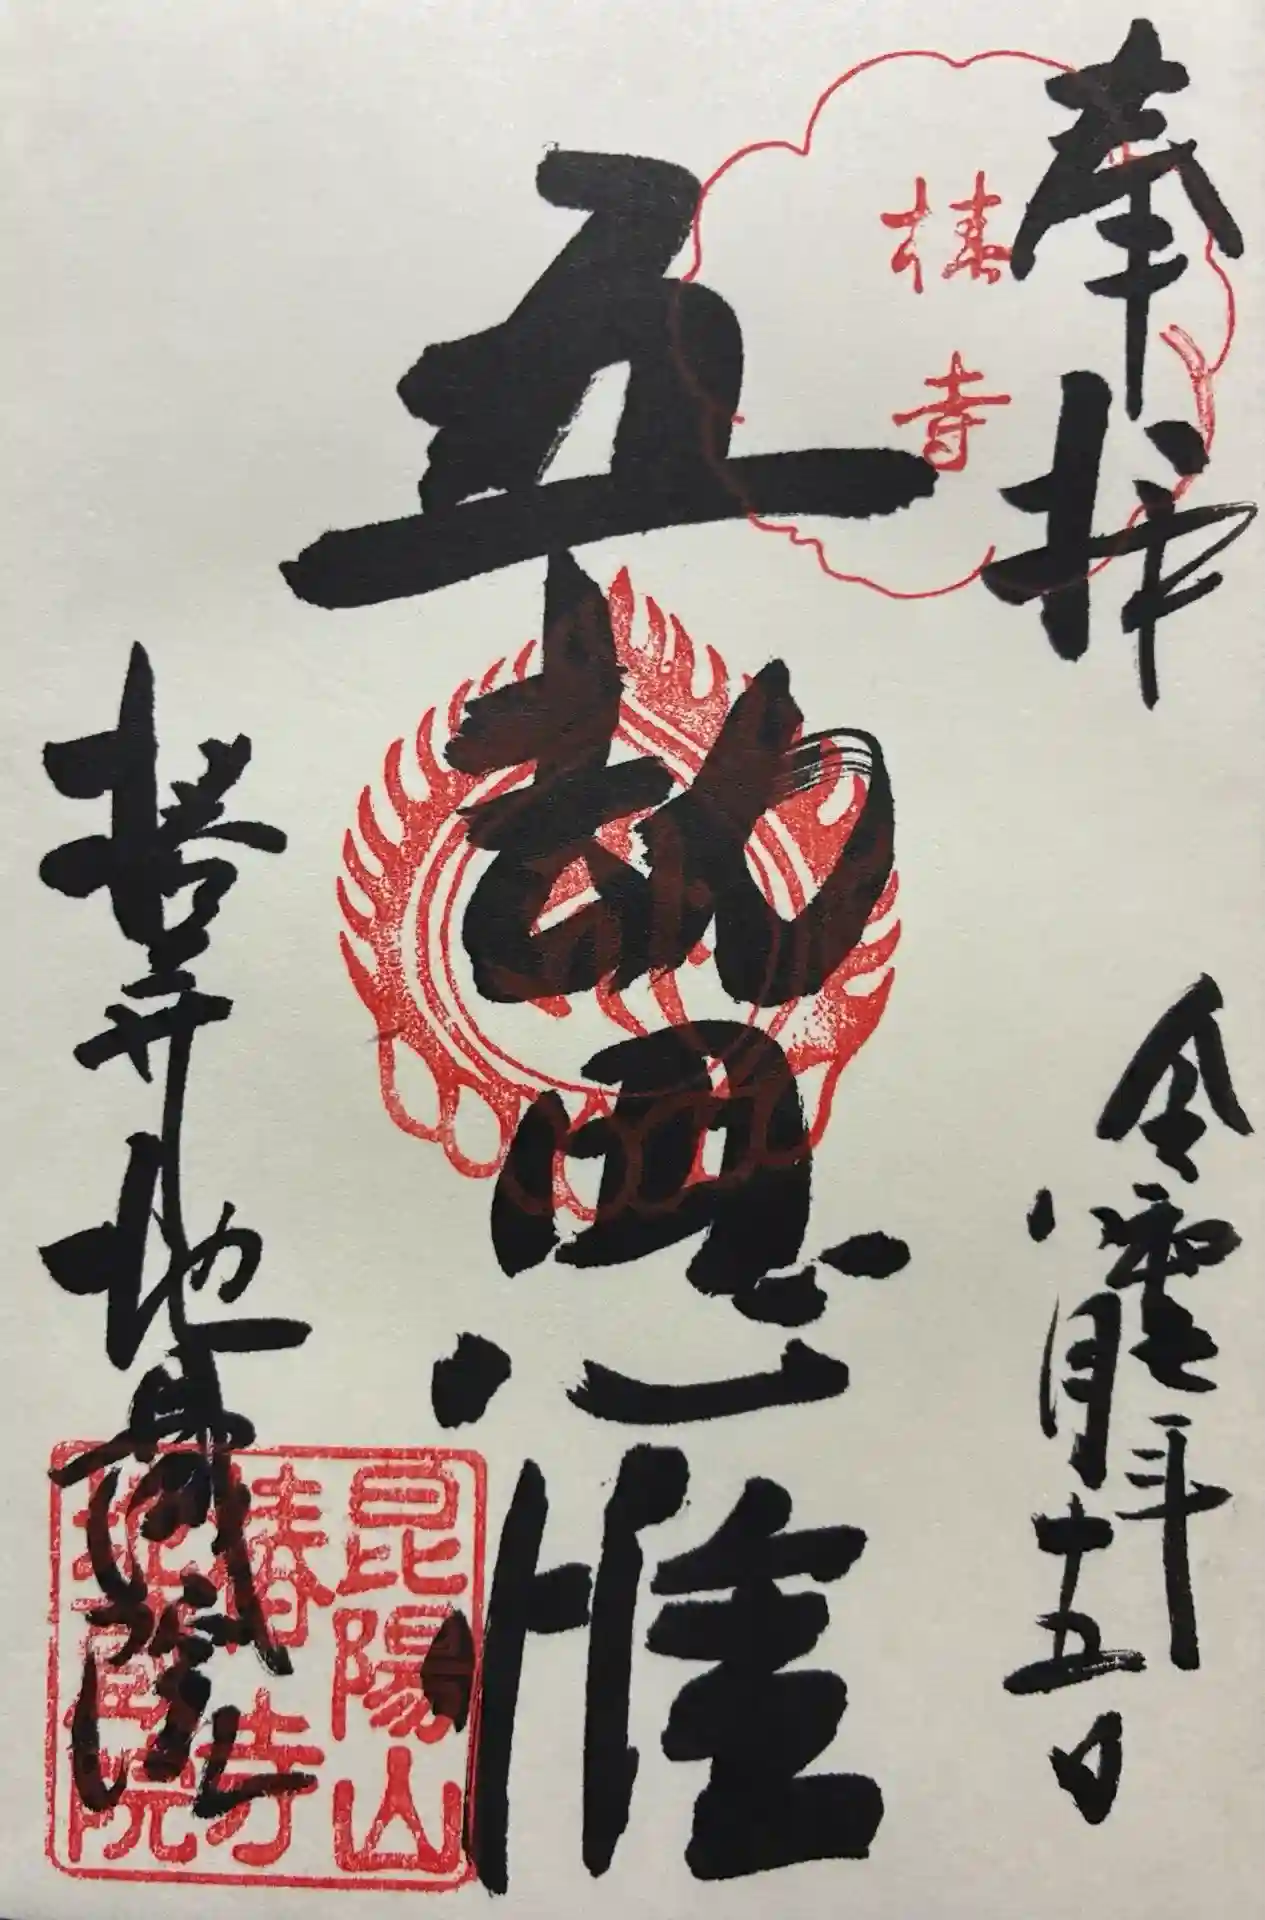 奉拝
椿
寺
令和七年
八月十五日
五劫思惟
椿寺地蔵院
昆陽山
椿寺
地蔵院